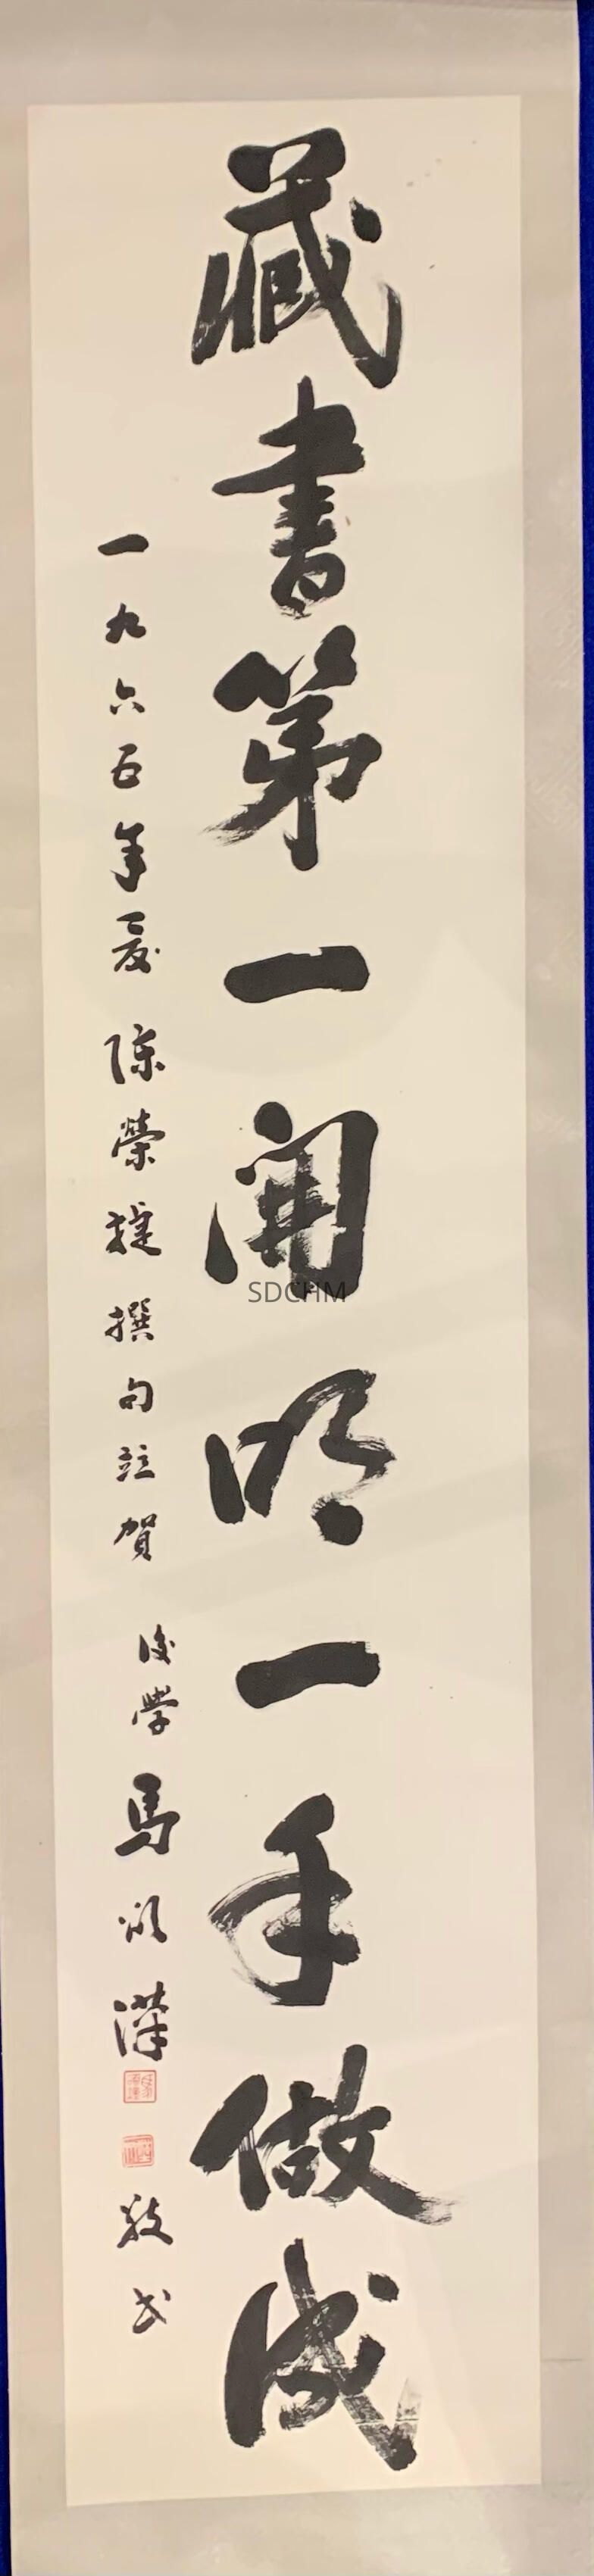 藏書第一開明一手做成
一九六五年夏陳榮捷撰句並賀 後學馬順漢敬書
SDCHM